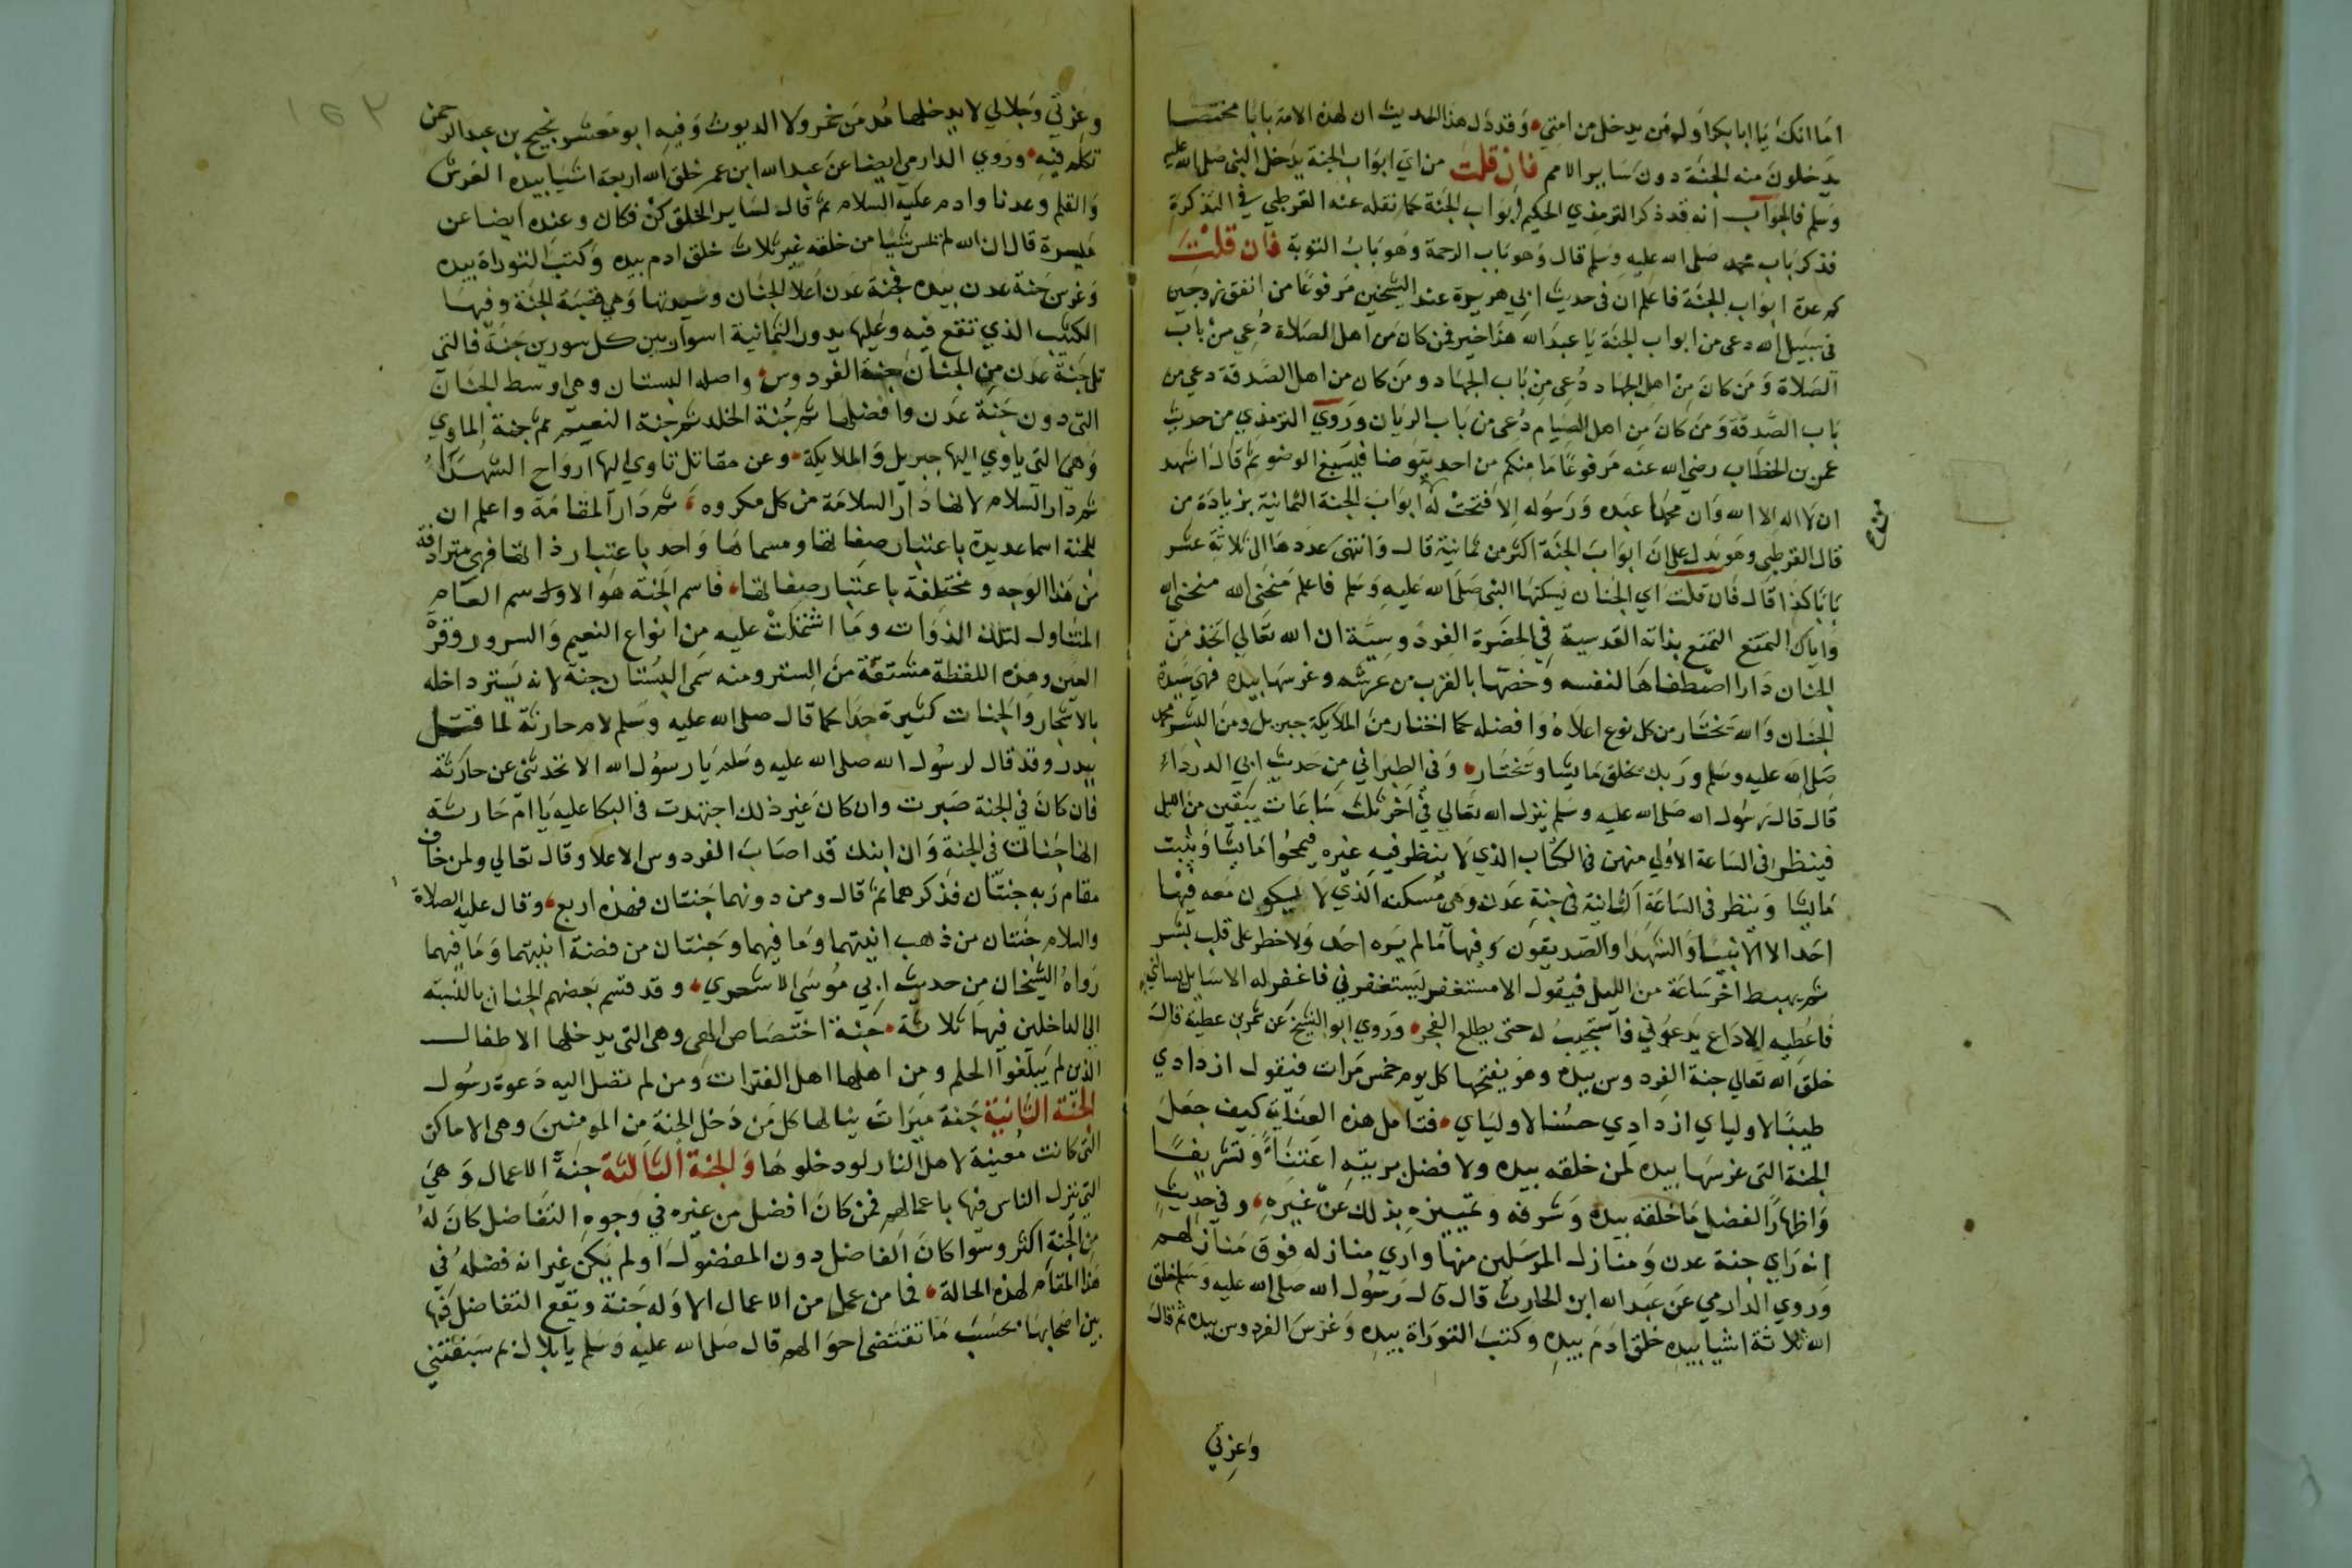 اما انك يا ابا بكر اول من يدخل من امتي وقد دل هذا الحديث ان لهذه الامة بابا مختصا
يدخلون منه الجنة دون ساير الامم فان قلت من اي ابواب الجنة يدخل النبي صلى الله عليه
وسلم فالجواب انه قد ذكر الترمذي الحكيم ابواب الجنة كما نقله عنه القرطبي في التذكرة
فذكر باب محمد صلى الله عليه وسلم قال وهو باب الرحمة وهو باب التوبة فان قلت
كم عدة ابواب الجنة فاعلم ان في حديث ابي هريرة عند الشيخين مرفوعا من انفق زوجين
في سبيل الله دعي من ابواب الجنة يا عبد الله هذا خير فمن كان من اهل الصلاة دعي من باب
الصلاة ومن كان من اهل الجهاد دعي من باب الجهاد ومن كان من اهل الصدقة دعي من
باب الصدقة ومن كان من اهل الصيام دعي من باب الريان وروي الترمذي من حديث
عمر بن الخطاب رضي الله عنه مرفوعا ما منكم من احد يتوضا فيسبغ الوضوء ثم قال اشهد
ان لا اله الا الله وان محمدا عبده ورسوله الا فتحت له ابواب الجنة الثمانية بزيادة من
قال القرطبي وهو يدل على ان ابواب الجنة اكثر من ثمانية قال وانتهى عددها الى ثلاثة عشر
بابا كذا قال فان قلت اي الجنان يسكنها النبي صلى الله عليه وسلم فاعلم منحني الله
واياك التمتع بذاته القدسية في الحضرة الفردوسية ان الله تعالي اتخذ من
الجنان دارا اصطفاها لنفسه وخصها بالقرب من عرشه وغرسها بيده فهي سيدة
الجنان والله يختار من كل نوع اعلاه وافضله كما اختار من الملايكة جبريل ومن البشر محمد
صلى الله عليه وسلم وربك يخلق ما يشا ويختار وفي الطبراني من حديث ابي الدرداء
قال قال رسول الله صلى الله عليه وسلم ينزل الله تعالي في اخر ثلث ساعات يبقين من الليل
فينظر في الساعة الاولي منهن في الكتاب الذي لا ينظر فيه غيره فيمحوا ما يشا ويثبت
ما يشا وينظر في الساعة الثانية في جنة عدن وهي مسكنه الذي لا يكون معه فيها
احد الا الانبيا والشهدا والصديقون وفيها ما لم يره احد ولا خطر على قلب بشر
ثم يهبط اخر ساعة من الليل فيقول الا مستغفر يستغفرني فاغفر له الا سايل يسالني
فاعطيه الا داع يدعوني فاستجيب له حتى يطلع الفجر وروي ابو الشيخ عن شمر بن عطية قال
خلق الله تعالي جنة الفردوس بيده وهو يفتحها كل يوم خمس مرات فيقول ازدادي
طيبا لاولياي ازدادي حسنا لاولياي فتامل هذه العناية كيف جعل
الجنة التي غرسها بيده لمن خلقه بيده ولا فضل بريته اعتناء وتشريفا
واظهارا لفضل ما خلقه بيده وشرفه وتمييزه بذلك عن غيره وفي حديث
انه راي جنة عدن ومنازل المرسلين منها واري منازله فوق منازلهم
وروي الدارمي عن عبد الله ابن الحارث قال قال رسول الله صلى الله عليه وسلم خلق
الله ثلاثة اشيا بيده خلق ادم بيده وكتب التوراة بيده وغرس الفردوس بيده ثم قال
وعزتي
وعزتي وجلالي لا يدخلها مدمن خمر ولا الديوث وفيه ابو معشر نجيح بن عبد الرحمن
تكلم فيه وروي الدارمي ايضا عن عبد الله ابن عمر خلق الله اربعة اشيا بيده العرش
والقلم وعدنا وادم عليه السلام ثم قال لساير الخلق كن فكان وعنده ايضا عن
ميسرة قال ان الله لم يمس شيا من خلقه غير ثلاث خلق ادم بيده وكتب التوراة بيده
وغرس جنة عدن بيده فجنة عدن اعلا الجنان وسيدتها وهي قصبة الجنة وفيها
الكثيب الذي تقع فيه وعليها يدور الثمانية اسوار بين كل سورين جنة فالتي
تلي جنة عدن من الجنان جنة الفردوس واصله البستان وهي اوسط الجنان
التي دون جنة عدن وافضلها ثم جنة الخلد ثم جنة النعيم ثم جنة الماوي
وهي التي ياوي اليها جبريل والملايكة وعن مقاتل تاوي اليها ارواح الشهداء
ثم دار السلام لانها دار السلامة من كل مكروه ثم دار المقامة واعلم ان
للجنة اسما عديدة باعتبار صفاتها ومسماها واحد باعتبار ذاتها فهي مترادفة
من هذا الوجه ومختلفة باعتبار صفاتها فاسم الجنة هو الاول سم العام
المتناول لتلك الذوات وما اشتملت عليه من انواع النعيم والسرور وقرة
العين وهذه اللفظة مشتقة من الستر ومنه سمى البستان جنة لانه يستر داخله
بالاشجار والجنات كثيرة جدا كما قال صلى الله عليه وسلم لام حارثة لما قتل
ببدر وقد قال لرسول الله صلى الله عليه وسلم يا رسول الله الا تحدثني عن حارثة
فان كان في الجنة صبرت وان كان غير ذلك اجتهدت في البكا عليه يا ام حارثة
انها جنات في الجنة وان ابنك قد اصاب الفردوس الاعلا وقال تعالي ولمن خاف
مقام ربه جنتان فذكرهما ثم قال ومن دونهما جنتان فهذه اربع وقال عليه الصلاة
والسلام جنتان من ذهب انيتهما وما فيهما وجنتان من فضة انيتهما وما فيهما
رواه الشيخان من حديث ابي موسي الاشعري وقد قسم بعضهم الجنان بالنسبة
الي الداخلين فيها ثلاثة جنة اختصاص الهي وهي التي يدخلها الاطفال
الذين لم يبلغوا الحلم ومن اهلها اهل الفترات ومن لم تصل اليه دعوة رسول
الجنة الثانية جنة ميراث ينالها كل من دخل الجنة من المومنين وهي الاماكن
التي كانت معينة لاهل النار لو دخلوها والجنة الثالثة جنة الاعمال وهي
التي ينزل الناس فيها باعمالهم فمن كان افضل من غيره في وجوه التفاضل كان له
من الجنة اكثر وسوا كان الفاضل دون المفضول او لم يكن غير انه فضله في
هذا المقام لهذه الحالة فما من عمل من الاعمال الا وله جنة ويقع التفاضل فيها
بين اصحابها بحسب ما تقتضي احوالهم قال صلى الله عليه وسلم يا بلال بم سبقتني